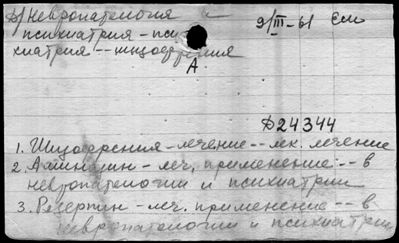 Невропатология
психиатрия - пси
хиатрия -- шизофрения
9/III-61
А
Д24344
1. Шизофрения - лечение -- лек. лечение
2. Аминазин - леч. применение -- в
невропатологии и психиатрии
3. Резерпин - леч. применение -- в
невропатологии и психиатрии